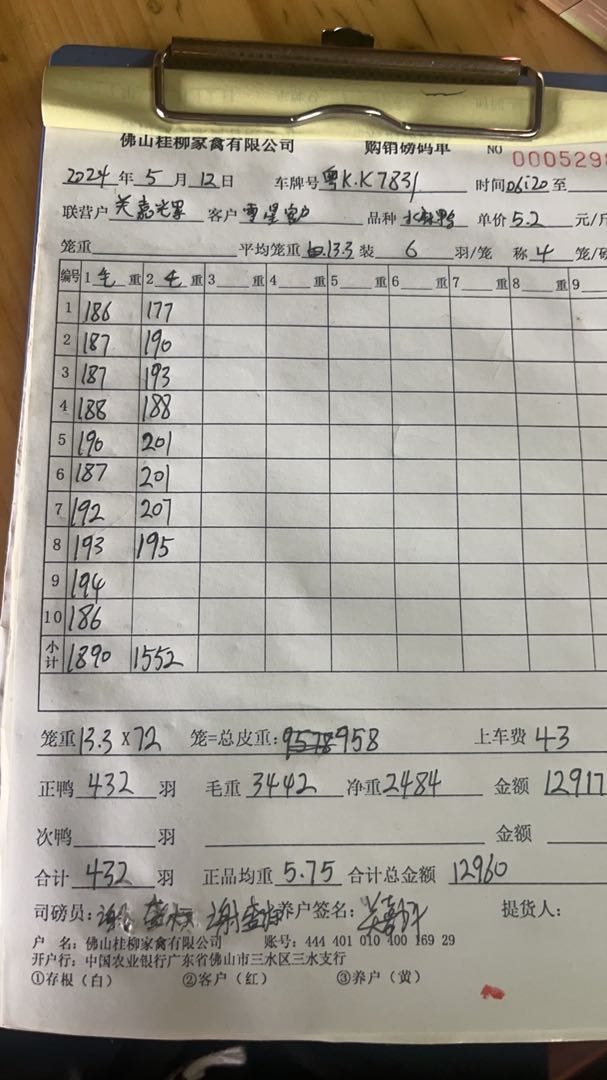 佛山桂柳家禽有限公司 购销磅码单 NO 0005298
2024 年 5 月 12 日 车牌号 粤K.K7831 时间 06:20 至
联营户 客户 品种 单价 5.2 元/斤
笼重 平均笼重 13.3 装 6 羽/笼 称 4 笼/磅
编号 1 毛 重 2 毛 重 3 重 4 重 5 重 6 重 7 重 8 重 9
1 186 177
2 187 190
3 187 193
4 188 188
5 190 201
6 187 201
7 192 207
8 193 195
9 194
10 186
小计 1890 1552
笼重 13.3 X 72 笼=总皮重: 958 上车费 43
正鸭 432 羽 毛重 3442 净重 2484 金额 12917
次鸭 羽 金额
合计 432 羽 正品均重 5.75 合计总金额 12960
司磅员: 养户签名: 提货人:
户 名: 佛山桂柳家禽有限公司 账号: 444 401 010 400 169 29
开户行: 中国农业银行广东省佛山市三水区三水支行
①存根（白） ②客户（红） ③养户（黄）